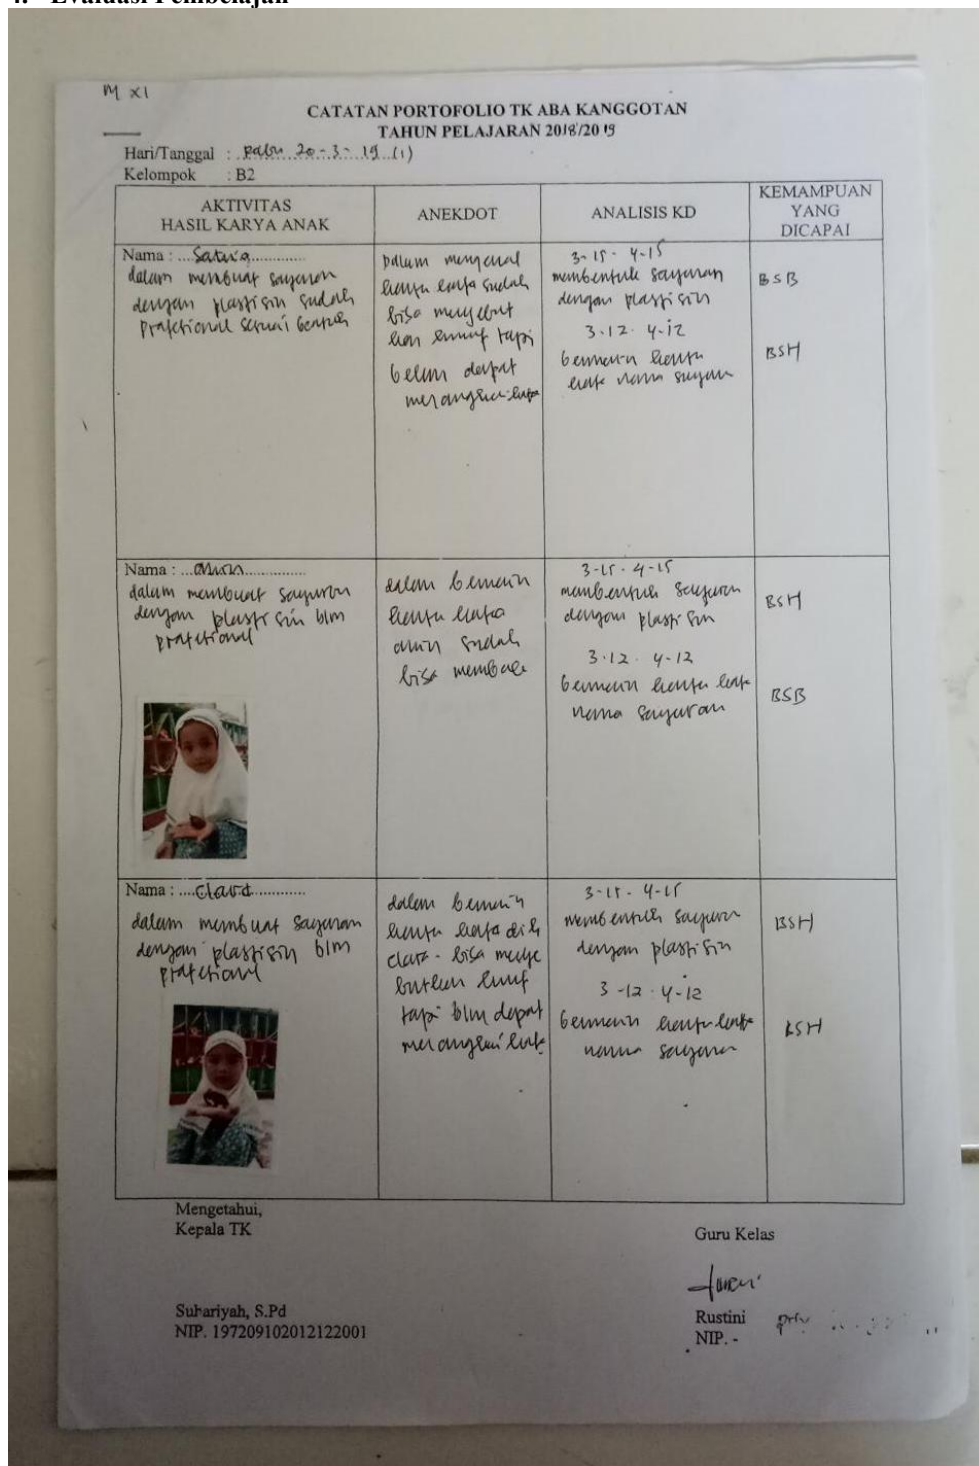 4. Evaluasi Pembelajan
M XI
CATATAN PORTOFOLIO TK ABA KANGGOTAN
TAHUN PELAJARAN 2018/2019
Hari/Tanggal : Rabu 20-3-19 (1)
Kelompok : B2
AKTIVITAS
HASIL KARYA ANAK
ANEKDOT
ANALISIS KD
KEMAMPUAN
YANG
DICAPAI
Nama :
dalam membuat sayuran
dengan plastisin sudah
sesuai bentuk
Dalam mengenal
kartu kata sudah
bisa menyebut
kan huruf tapi
belum dapat
merangkai kata
3-15 - 4-15
membentuk sayuran
dengan plastisin
3.12. 4-12
bermain kartu
kata nama sayuran
BSB
BSH
Nama :
dalam membuat sayuran
dengan plastisin blm
dalam bermain
kartu kata
sudah
bisa
3-15 - 4-15
membentuk sayuran
dengan plastisin
3.12. 4-12
bermain kartu kata
nama sayuran
BSH
BSB
Nama : Clara
dalam membuat sayuran
dengan plastisin blm
dalam bermain
kartu kata
clara - bisa menye
butkan huruf
tapi blm dapat
merangkai kata
3-15 - 4-15
membentuk sayuran
dengan plastisin
3-12. 4-12
bermain kartu kata
nama sayuran
BSH
BSH
Mengetahui,
Kepala TK
Suhariyah, S.Pd
NIP. 197209102012122001
Guru Kelas
Rustini
NIP. -